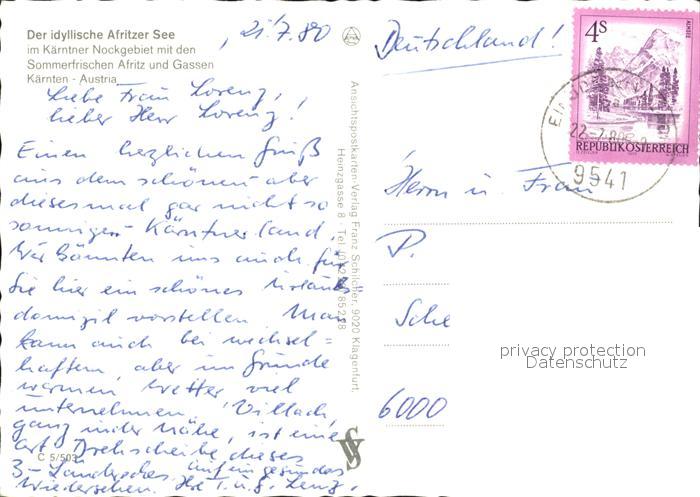 Der idyllische Afritzer See
im Kärntner Nockgebiet mit den
Sommerfrischen Afritz und Gassen
Kärnten - Austria
, 21.7.80
Liebe Frau Lorenz,
lieber Herr Lorenz!
Einen herzlichen Gruß
aus dem schönen aber
diesesmal gar nicht so
sonnigen Kärntner land.
Wir könnten uns auch für
Sie hier ein schönes Urlaubs
domizil vorstellen. Man
kann auch bei wechsel=
haften, aber im Grunde
warmen Wetter viel
unternehmen, Villach,
ganz in der Nähe, ist eine
Art Drehscheibe dieses
3-Länderecks. auf ein gesundes
Wiedersehen.
C 5/503
Ansichtspostkarten-Verlag Franz Schilcher, 9020 Klagenfurt,
Henzgasse 8 Tel
Deutschland!
4S
ALMSEE
REPUBLIK ÖSTERREICH
9541
Herrn u. Frau
P.
Sche
6000
privacy protection
Datenschutz